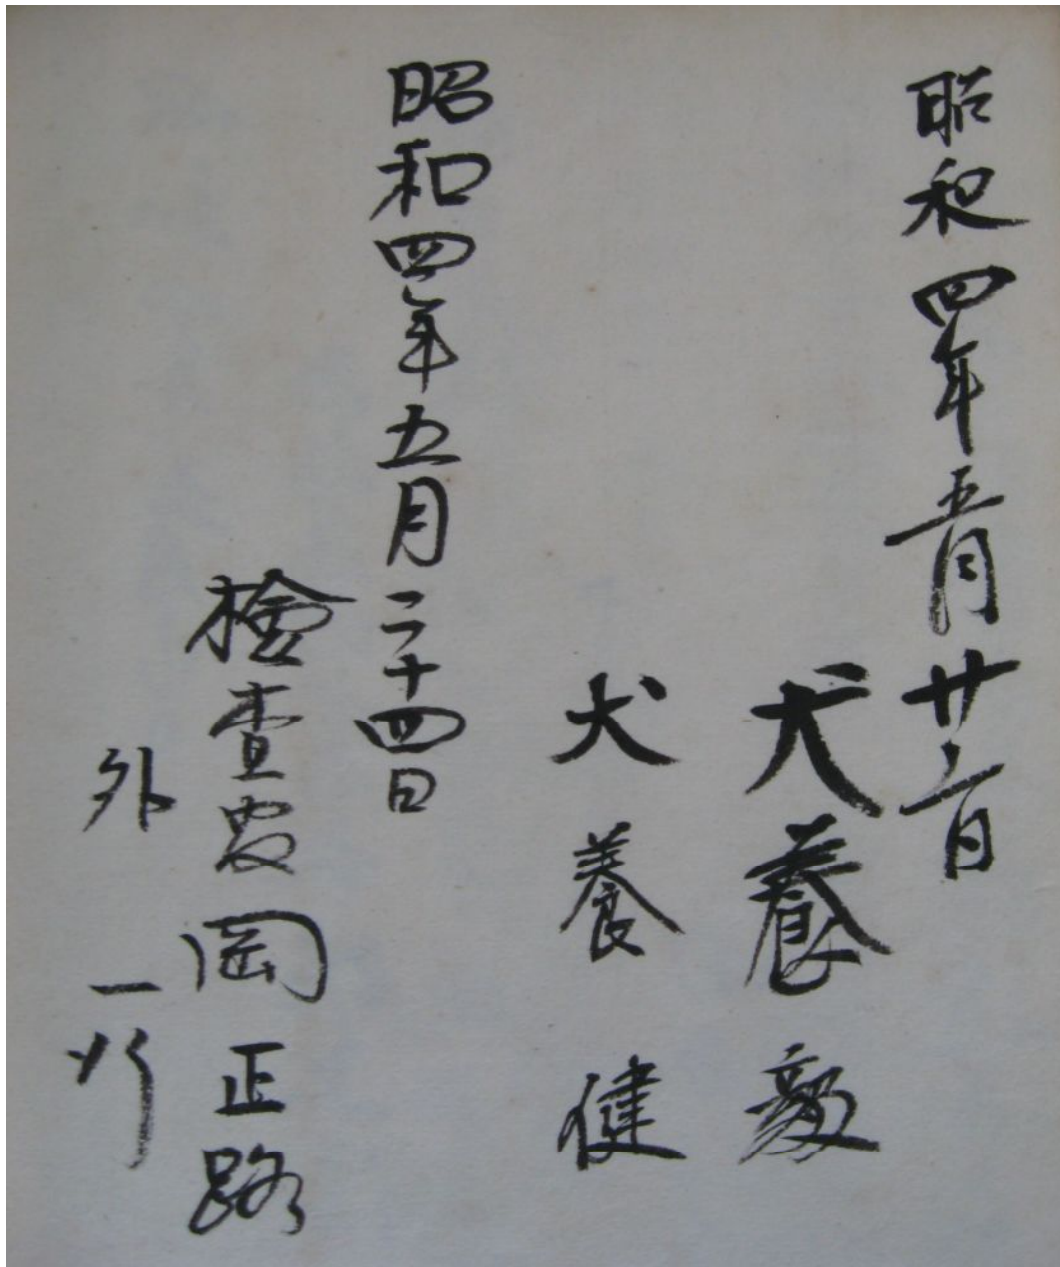 昭和四年五月廿二日
犬養毅
犬養健
昭和四年五月二十四日
檢査 岡正路
外一行